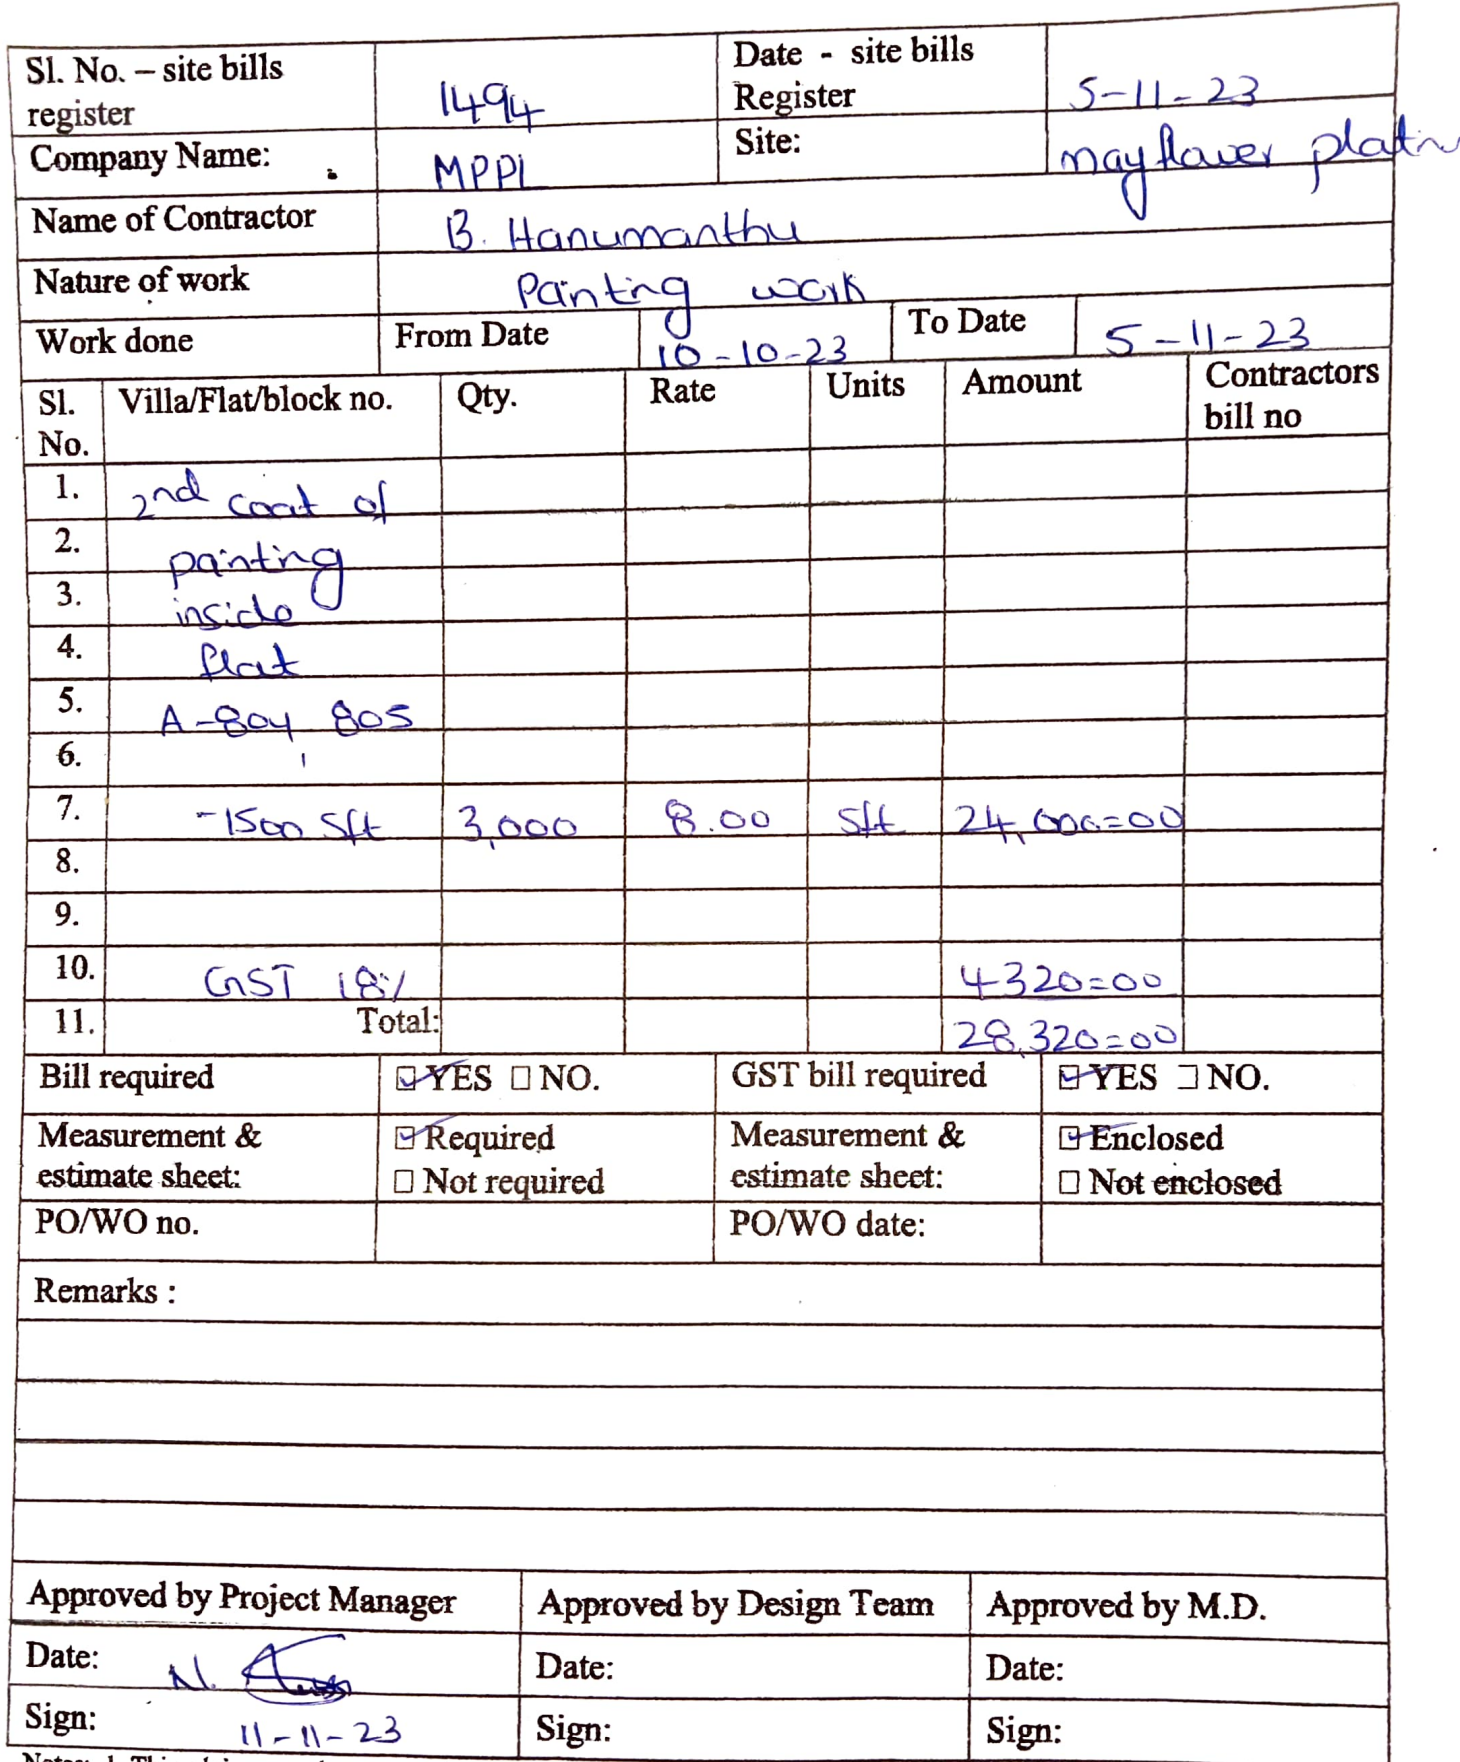 Sl. No. – site bills register 1494 Date - site bills Register 5-11-23
Company Name: MPPL Site: mayflower platn
Name of Contractor B. Hanumanthu
Nature of work Painting work
Work done From Date 10-10-23 To Date 5-11-23
Sl. No. Villa/Flat/block no. Qty. Rate Units Amount Contractors bill no
1. 2nd coat of
2. painting
3. inside
4. flat
5. A-804, 805
6.
7. -1500 Sft 3,000 8.00 Sft 24,000=00
8.
9.
10. GST 18% 4320=00
11. Total: 28,320=00
Bill required ☑ YES ☐ NO. GST bill required ☑ YES ☐ NO.
Measurement & estimate sheet: ☑ Required ☐ Not required Measurement & estimate sheet: ☑ Enclosed ☐ Not enclosed
PO/WO no. PO/WO date:
Remarks :
Approved by Project Manager Approved by Design Team Approved by M.D.
Date: N. Date: Date:
Sign: 11-11-23 Sign: Sign: